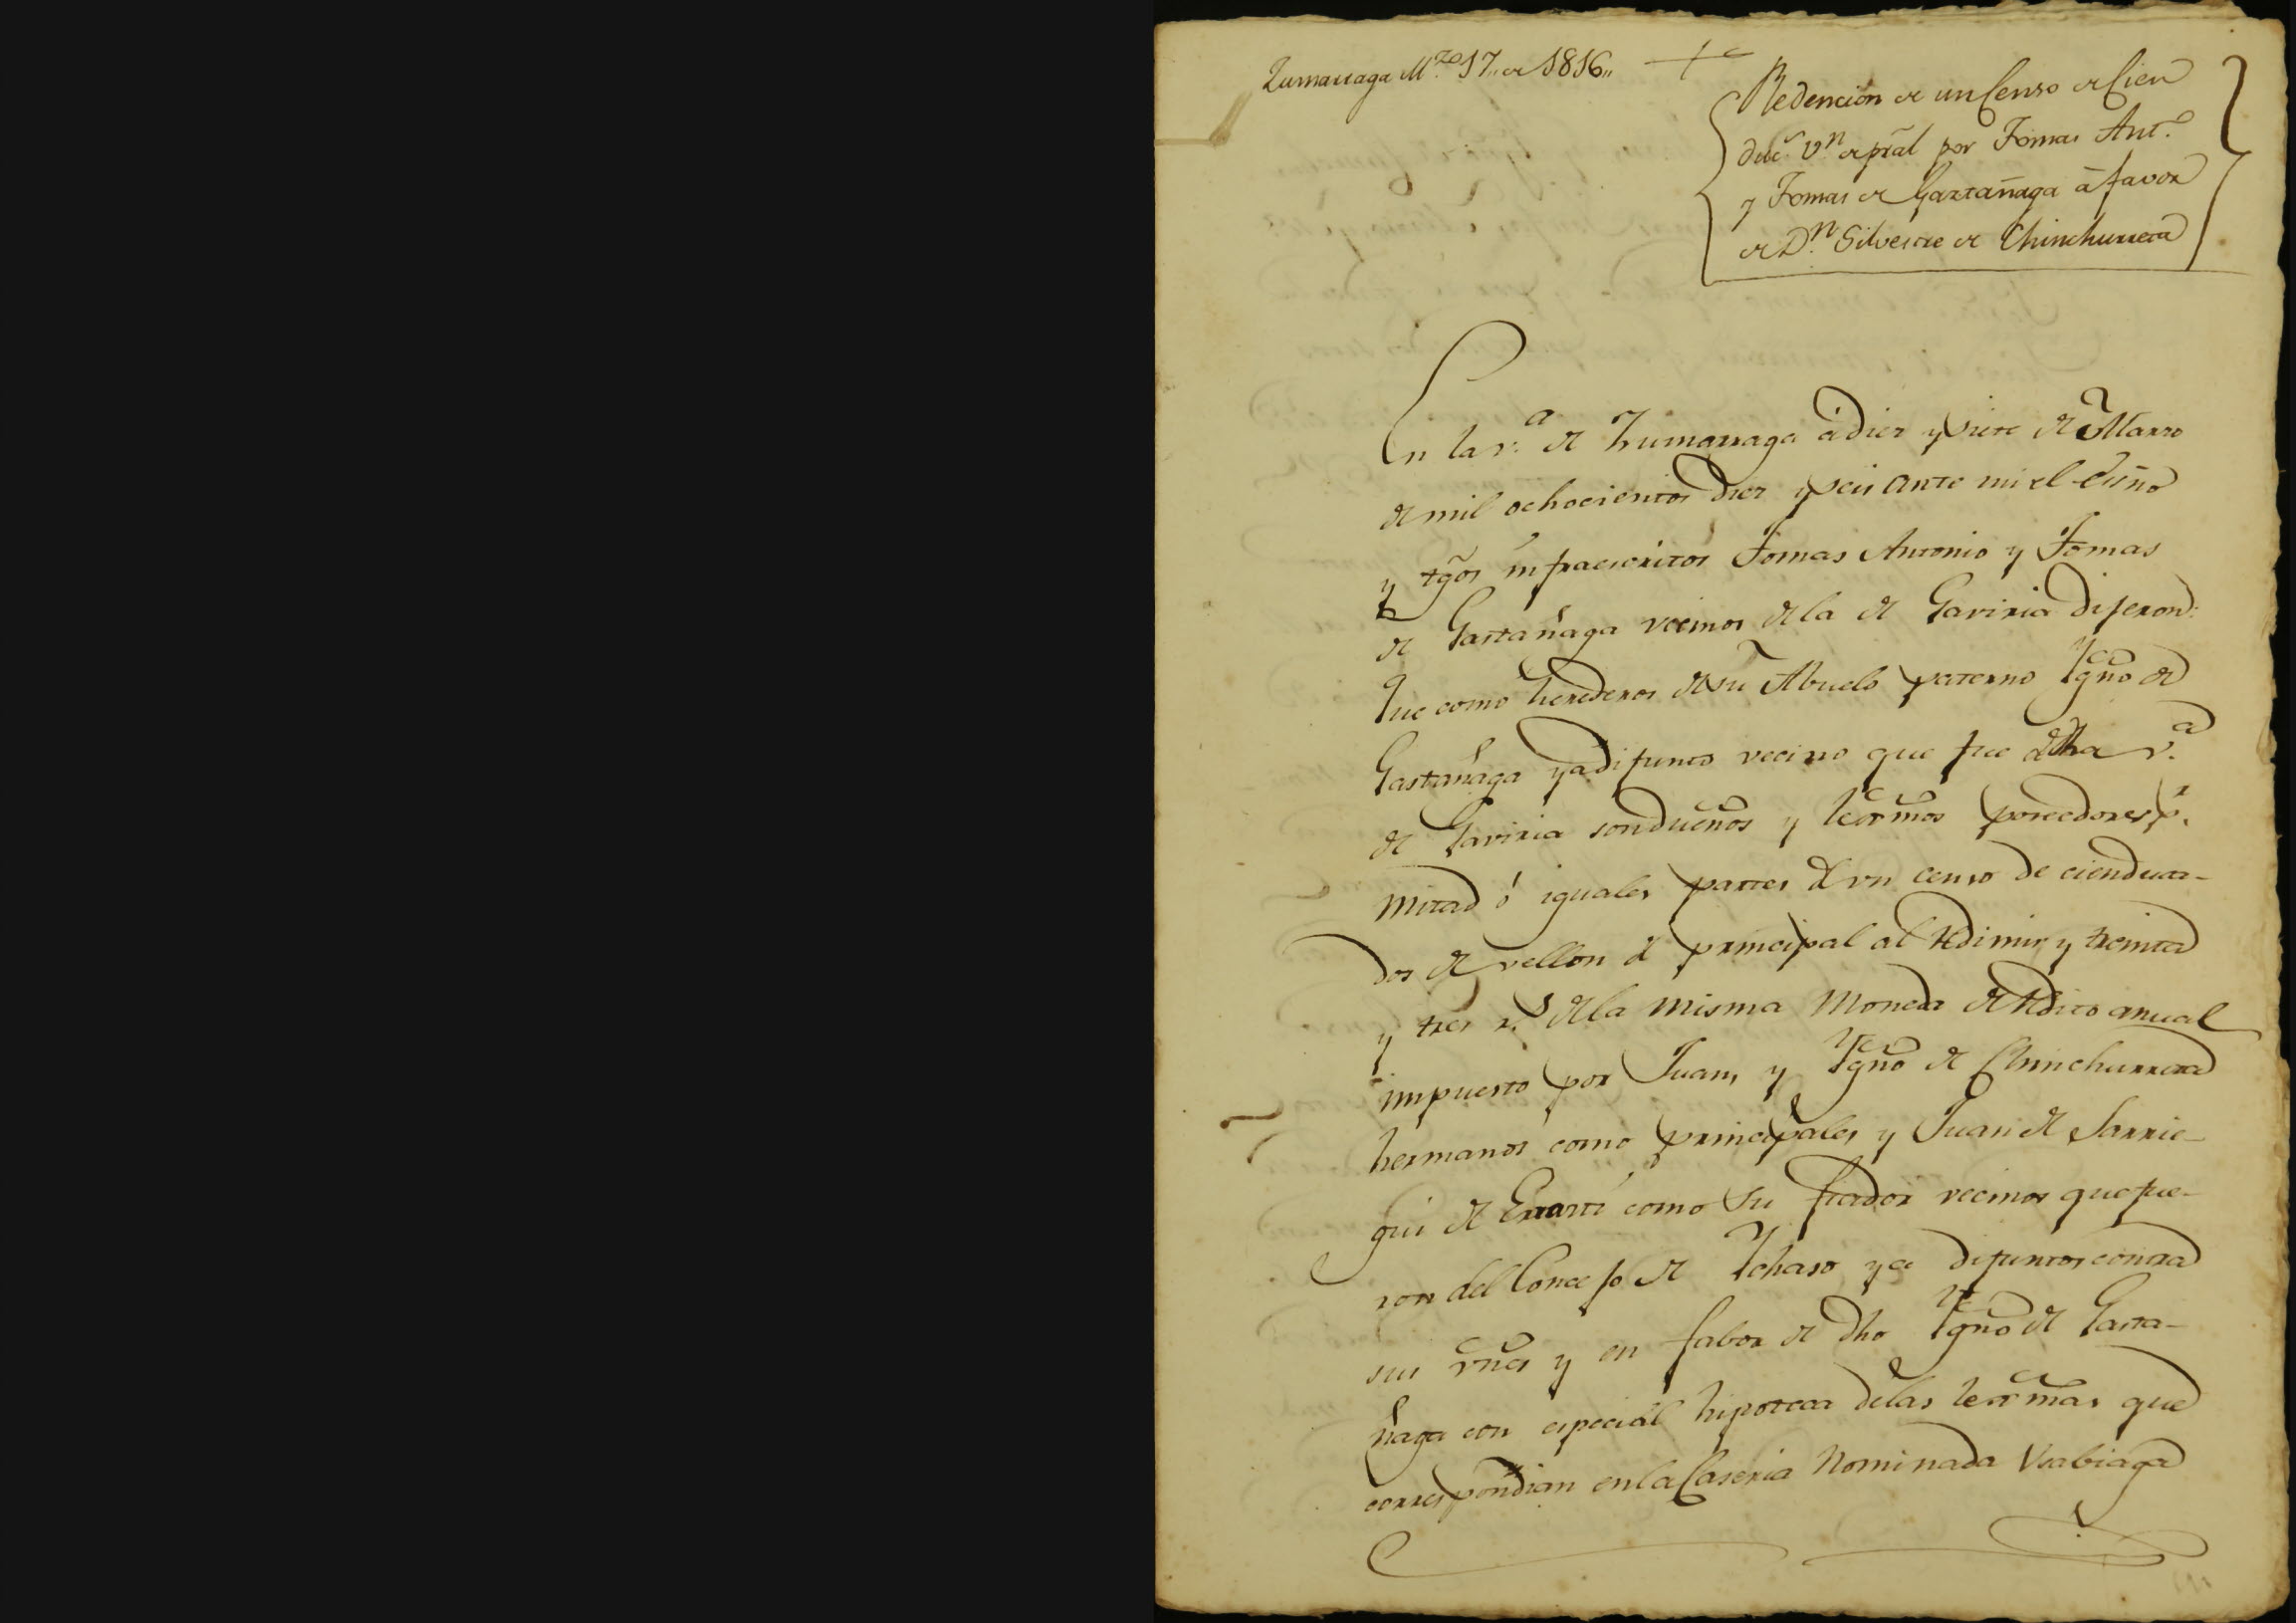 Zumarraga M.zo 17,, de 1816,,
Redencion de un Censo de Cien
duc.s v.n de pral por Tomas Ant.o
y Tomas de Gaztañaga à favor
de D.n Silvestre de Chinchurreta
En la v.a de Zumarraga à diez y siete de Marzo
de mil ochocientos diez y seis ante mi el Esño
y tgos infraescritos Tomas Antonio y Tomas
de Gastañaga vecinos de la de Gaviria dijeron:
Que como herederos de su Abuelo paterno Ygño de
Gastañaga ya difunto vecino que fue de dha v.a
de Gaviria son dueños y lexmos poseedores p.r
mitad ó iguales partes de vn censo de cien duca-
dos de vellon de principal al redimir y treinta
y tres r.s de la misma moneda de redito anual
impuesto por Juan, y Ygño de Chinchurreta
hermanos como principales y Juan de Sarrie-
gui de como su fiador vecinos que fue-
ron del Concejo de Ychaso ya difuntos contra
sus vnes y en fabor de dho Ygño de Gasta-
ñaga con especial hipoteca de las lexmas que
correspondian en la Caseria nominada Vsabiaga